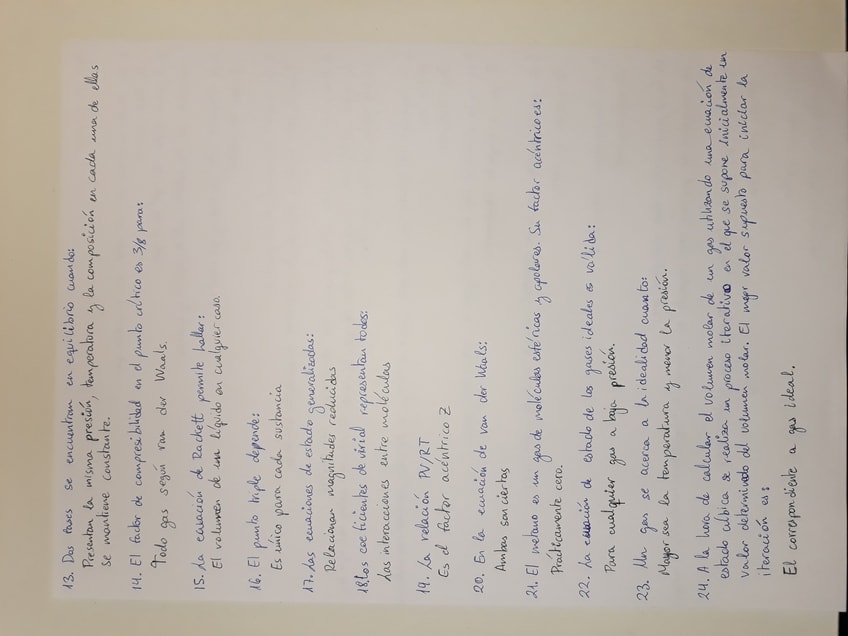 13. Dos fases se encuentran en equilibrio cuando:
Presentan la misma presión, temperatura y la composición en cada una de ellas
se mantiene constante.
14. El factor de compresibilidad en el punto crítico es 3/8 para:
Todo gas según van der Waals.
15. La ecuación de Rackett permite hallar:
El volumen de un líquido en cualquier caso
16. El punto triple depende:
Es único para cada sustancia
17. Las ecuaciones de estado generalizadas:
Relacionan magnitudes reducidas
18. Los coeficientes de virial representan todos:
Las interacciones entre moléculas
19. La relación PV/RT
Es el factor acéntrico Z
20. En la ecuación de van der Waals:
Ambas son ciertas
21. El metano es un gas de moléculas esféricas y apolares. Su factor acéntrico es:
Prácticamente cero.
22. La ecuación de estado de los gases ideales es válida:
Para cualquier gas a baja presión.
23. Un gas se acerca a la idealidad cuanto:
Mayor sea la temperatura y menor la presión.
24. A la hora de calcular el volumen molar de un gas utilizando una ecuación de
estado cúbica se realiza un proceso iterativo en el que se supone inicialmente un
valor determinado del volumen molar. El mejor valor supuesto para iniciar la
iteración es:
El correspondiente a gas ideal.